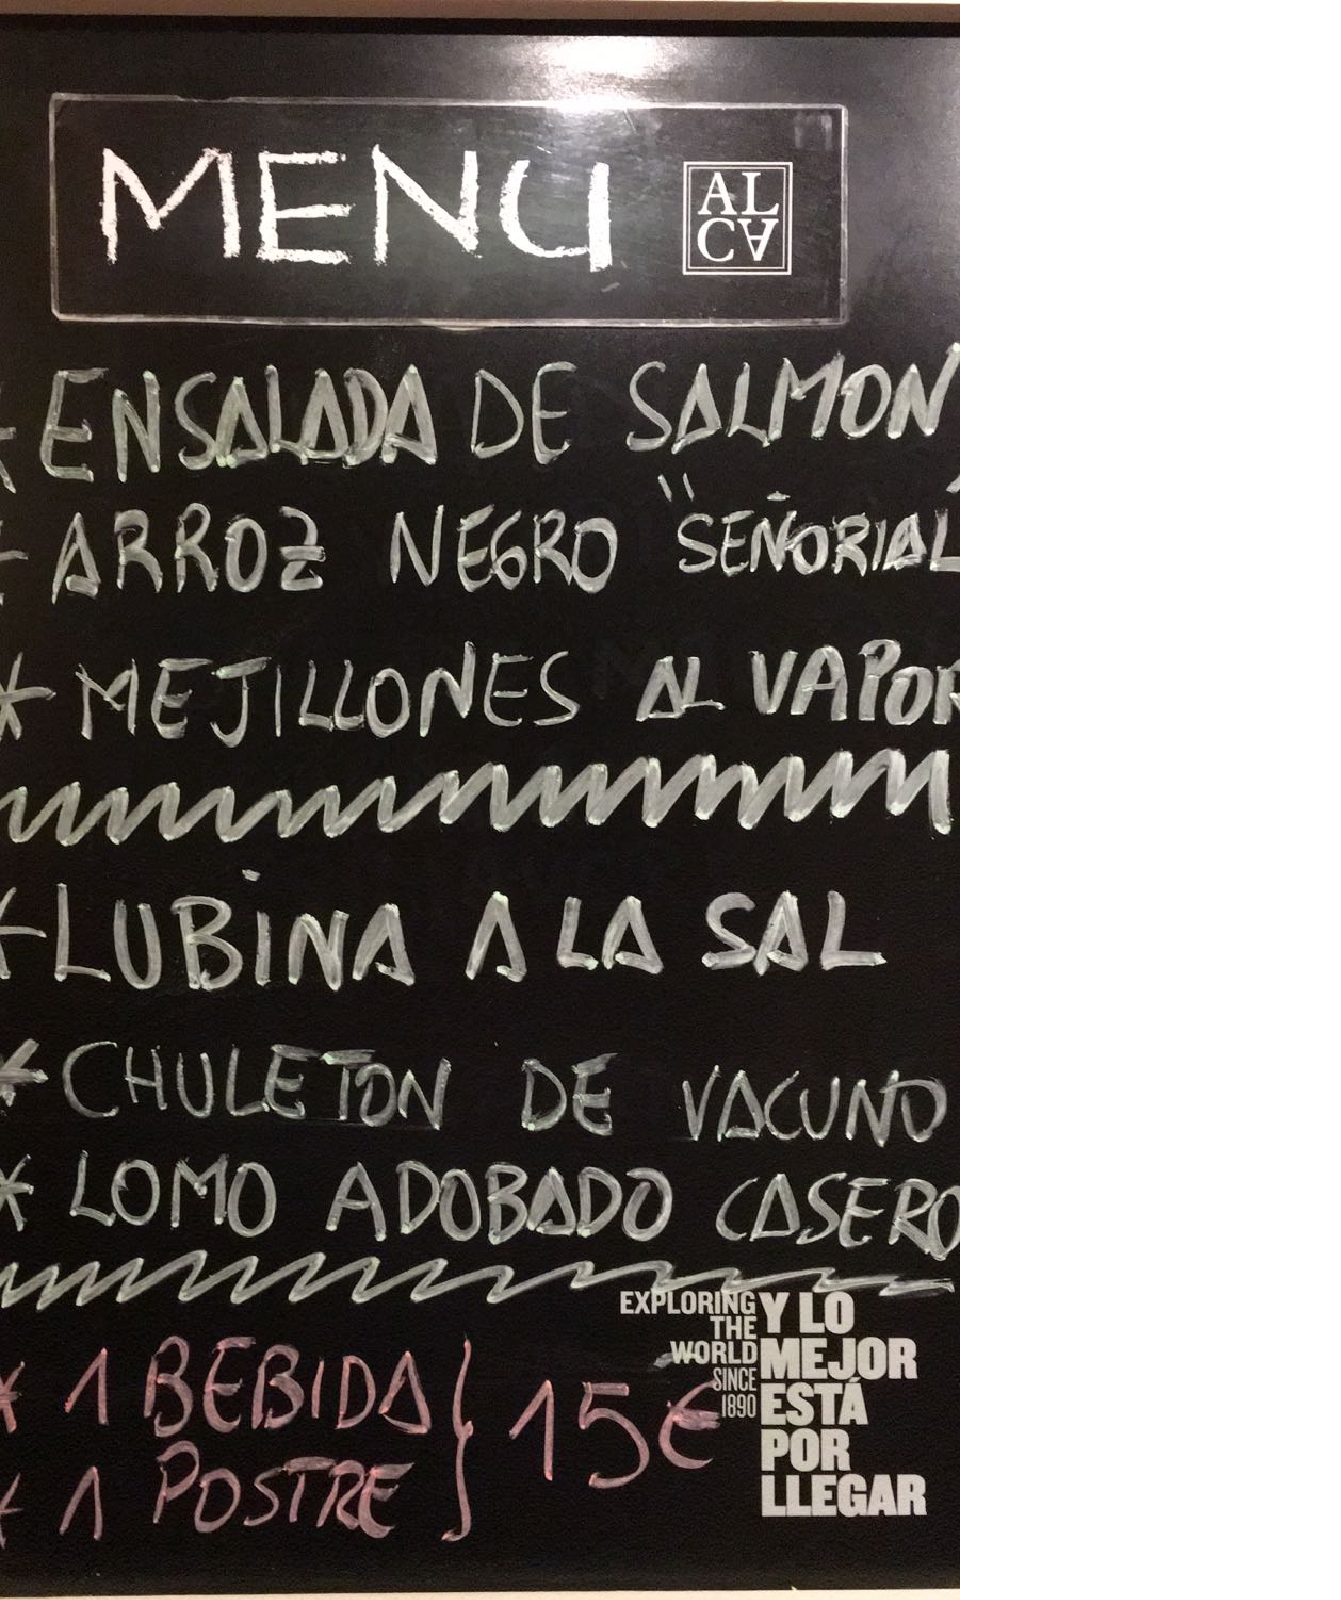 MENU
AL
CA
* ENSALADA DE SALMON
* ARROZ NEGRO "SEÑORIAL
* MEJILLONES AL VAPOR
* LUBINA A LA SAL
* CHULETON DE VACUNO
* LOMO ADOBADO CASERO
* 1 BEBIDA } 15€
* 1 POSTRE
EXPLORING
THE
WORLD
SINCE
1890
Y LO
MEJOR
ESTÁ
POR
LLEGAR